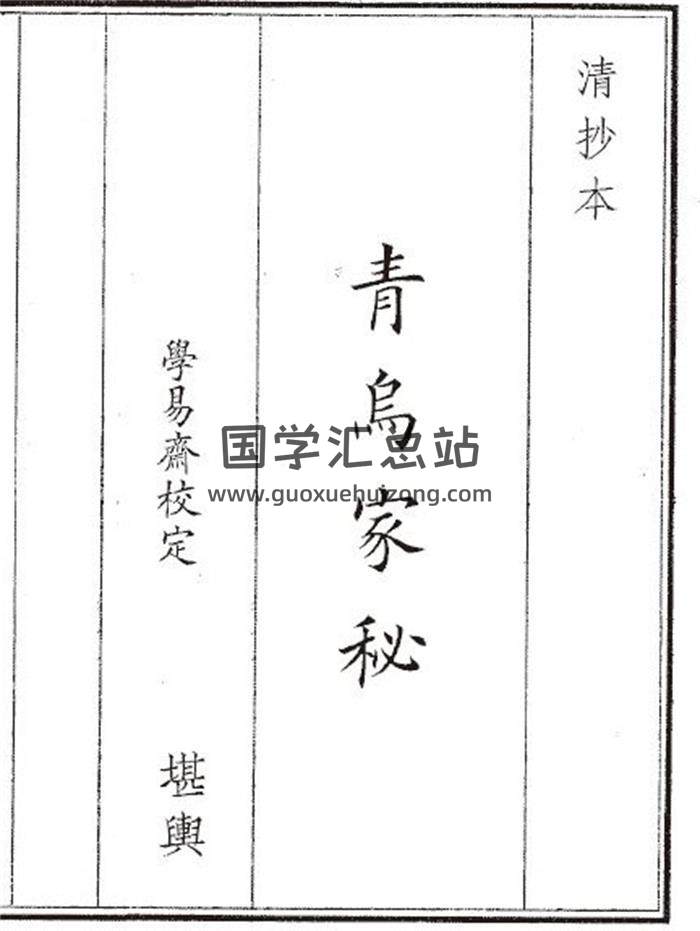 清抄本
青烏家秘
學易齋校定
堪輿
国学汇总站
www.guoxuehuizong.com